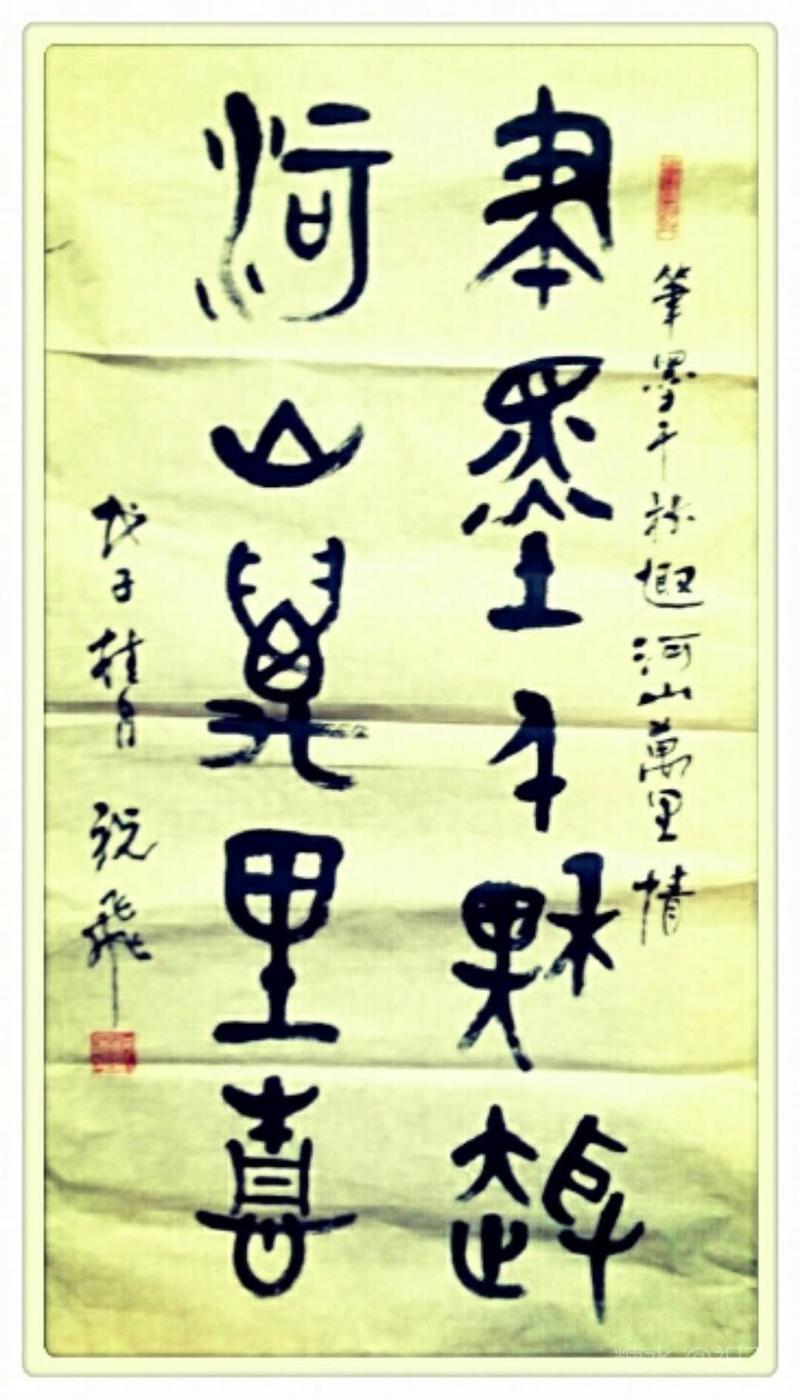 筆墨千秋趣河山萬里情
筆墨千秋趣
河山萬里情
戊子桂月 祝飛